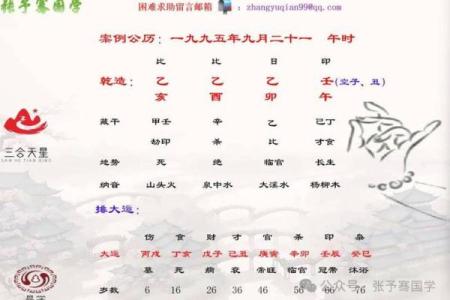 张予骞国学
困难求助留言邮箱：zhangyuqian99@qq.com
案例公历：一九九五年九月二十一 午时
比 比 日 印
乾造：乙 乙 乙 壬(空子、丑)
亥 酉 卯 午
藏干 甲壬 辛 乙 己丁
劫印 杀 比 才食
地势 死 绝 临官 长生
纳音 山头火 泉中水 大溪水 杨柳木
三合天星
SAN HE TIAN XING
排大运：
伤 食 财 才 官 杀 印
大运 丙戌 丁亥 戊子 己丑 庚寅 辛卯 壬辰 癸巳
墓 死 病 衰 帝旺 临官 冠带 沐浴
岁数 6 16 26 36 46 56 66 76
公众号：张予骞国学